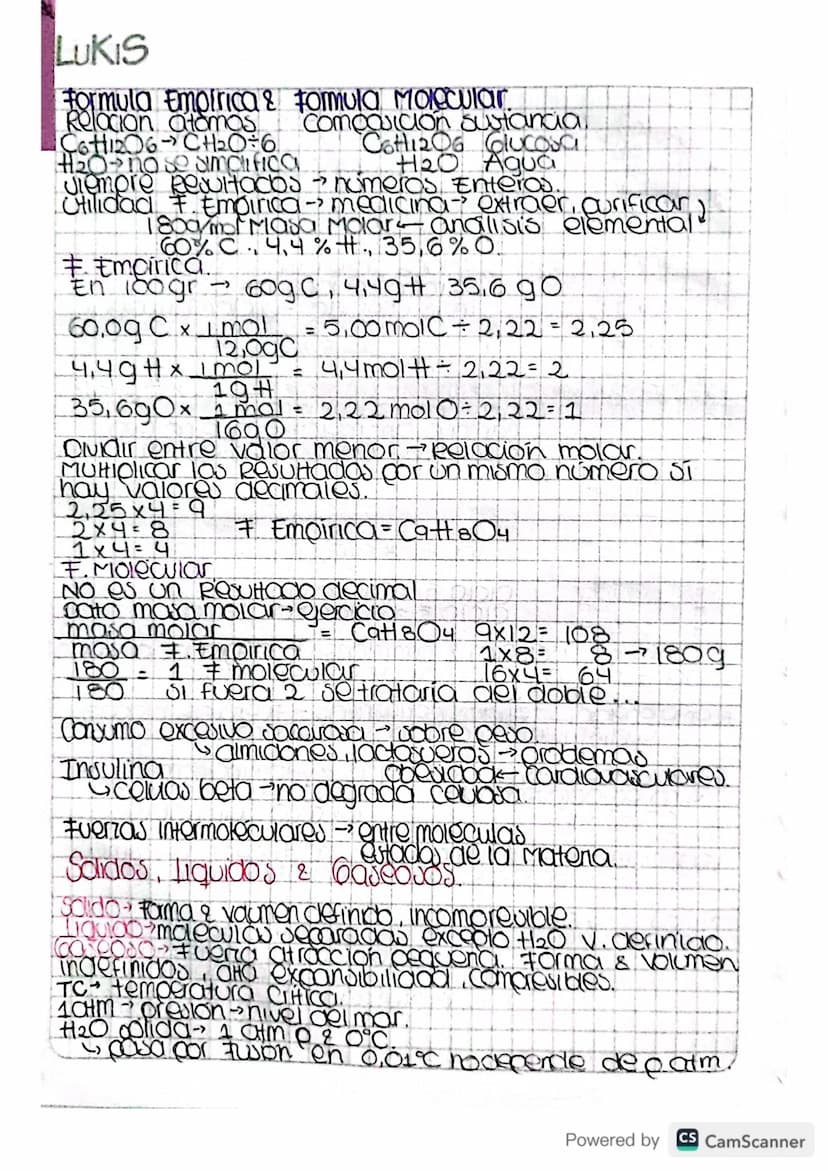 LUKIS
Formula Empírica & Formula Molecular.
Relación átomos composición sustancia.
C6H12O6 → CH2O ÷ 6 C6H12O6 Glucosa
H2O → no se simplifica H2O Agua
siempre Resultados → números Enteros.
Utilidad F. Empírica → medicina → extraer, purificar
180g/mol Masa Molar ← análisis elemental
60% C., 4,4 % H., 35,6 % O.
F. Empírica.
En 100gr → 60g C, 4,4g H 35,6 g O
60,0g C x 1 mol = 5,00 mol C ÷ 2,22 = 2,25
12,0g C
4,4 g H x 1 mol = 4,4 mol H ÷ 2,22 = 2
1g H
35,6g O x 1 mol = 2,22 mol O ÷ 2,22 = 1
16g O
Dividir entre valor menor. → Relación molar.
Multiplicar los Resultados por un mismo número si
hay valores decimales.
2,25 x 4 = 9
2 x 4 = 8 F Empírica = C9H8O4
1 x 4 = 4
F. Molecular
No es un Resultado decimal
Dato masa molar → ejercicio
masa molar = C9H8O4 9x12 = 108
masa F. Empírica 1x8 = 8 → 180g
180 = 1 F molecular 16x4 = 64
180 Si fuera 2 se trataría del doble...
Consumo excesivo sacarosa → sobre peso.
↳ almidones, lactosueros → problemas
Insulina obesidad ← cardiovasculares.
↳ celulas beta → no degrada celulosa.
Fuerzas intermoleculares → entre moléculas
estados de la Materia.
Solidos, Liquidos & Gaseosos.
Solido → Forma & volumen definido, incompresible.
Liquido → moleculas separadas excepto H2O V. definido.
Gaseoso → Fuerza atracción pequeña. Forma & Volumen
indefinidos, alta expansibilidad, compresibles.
TC → temperatura Crítica.
1 atm → presion → nivel del mar.
H2O solida → 1 atm p & 0°C.
↳ pasa por Fusión en 0,01°C no depende de p atm.
Powered by CS CamScanner